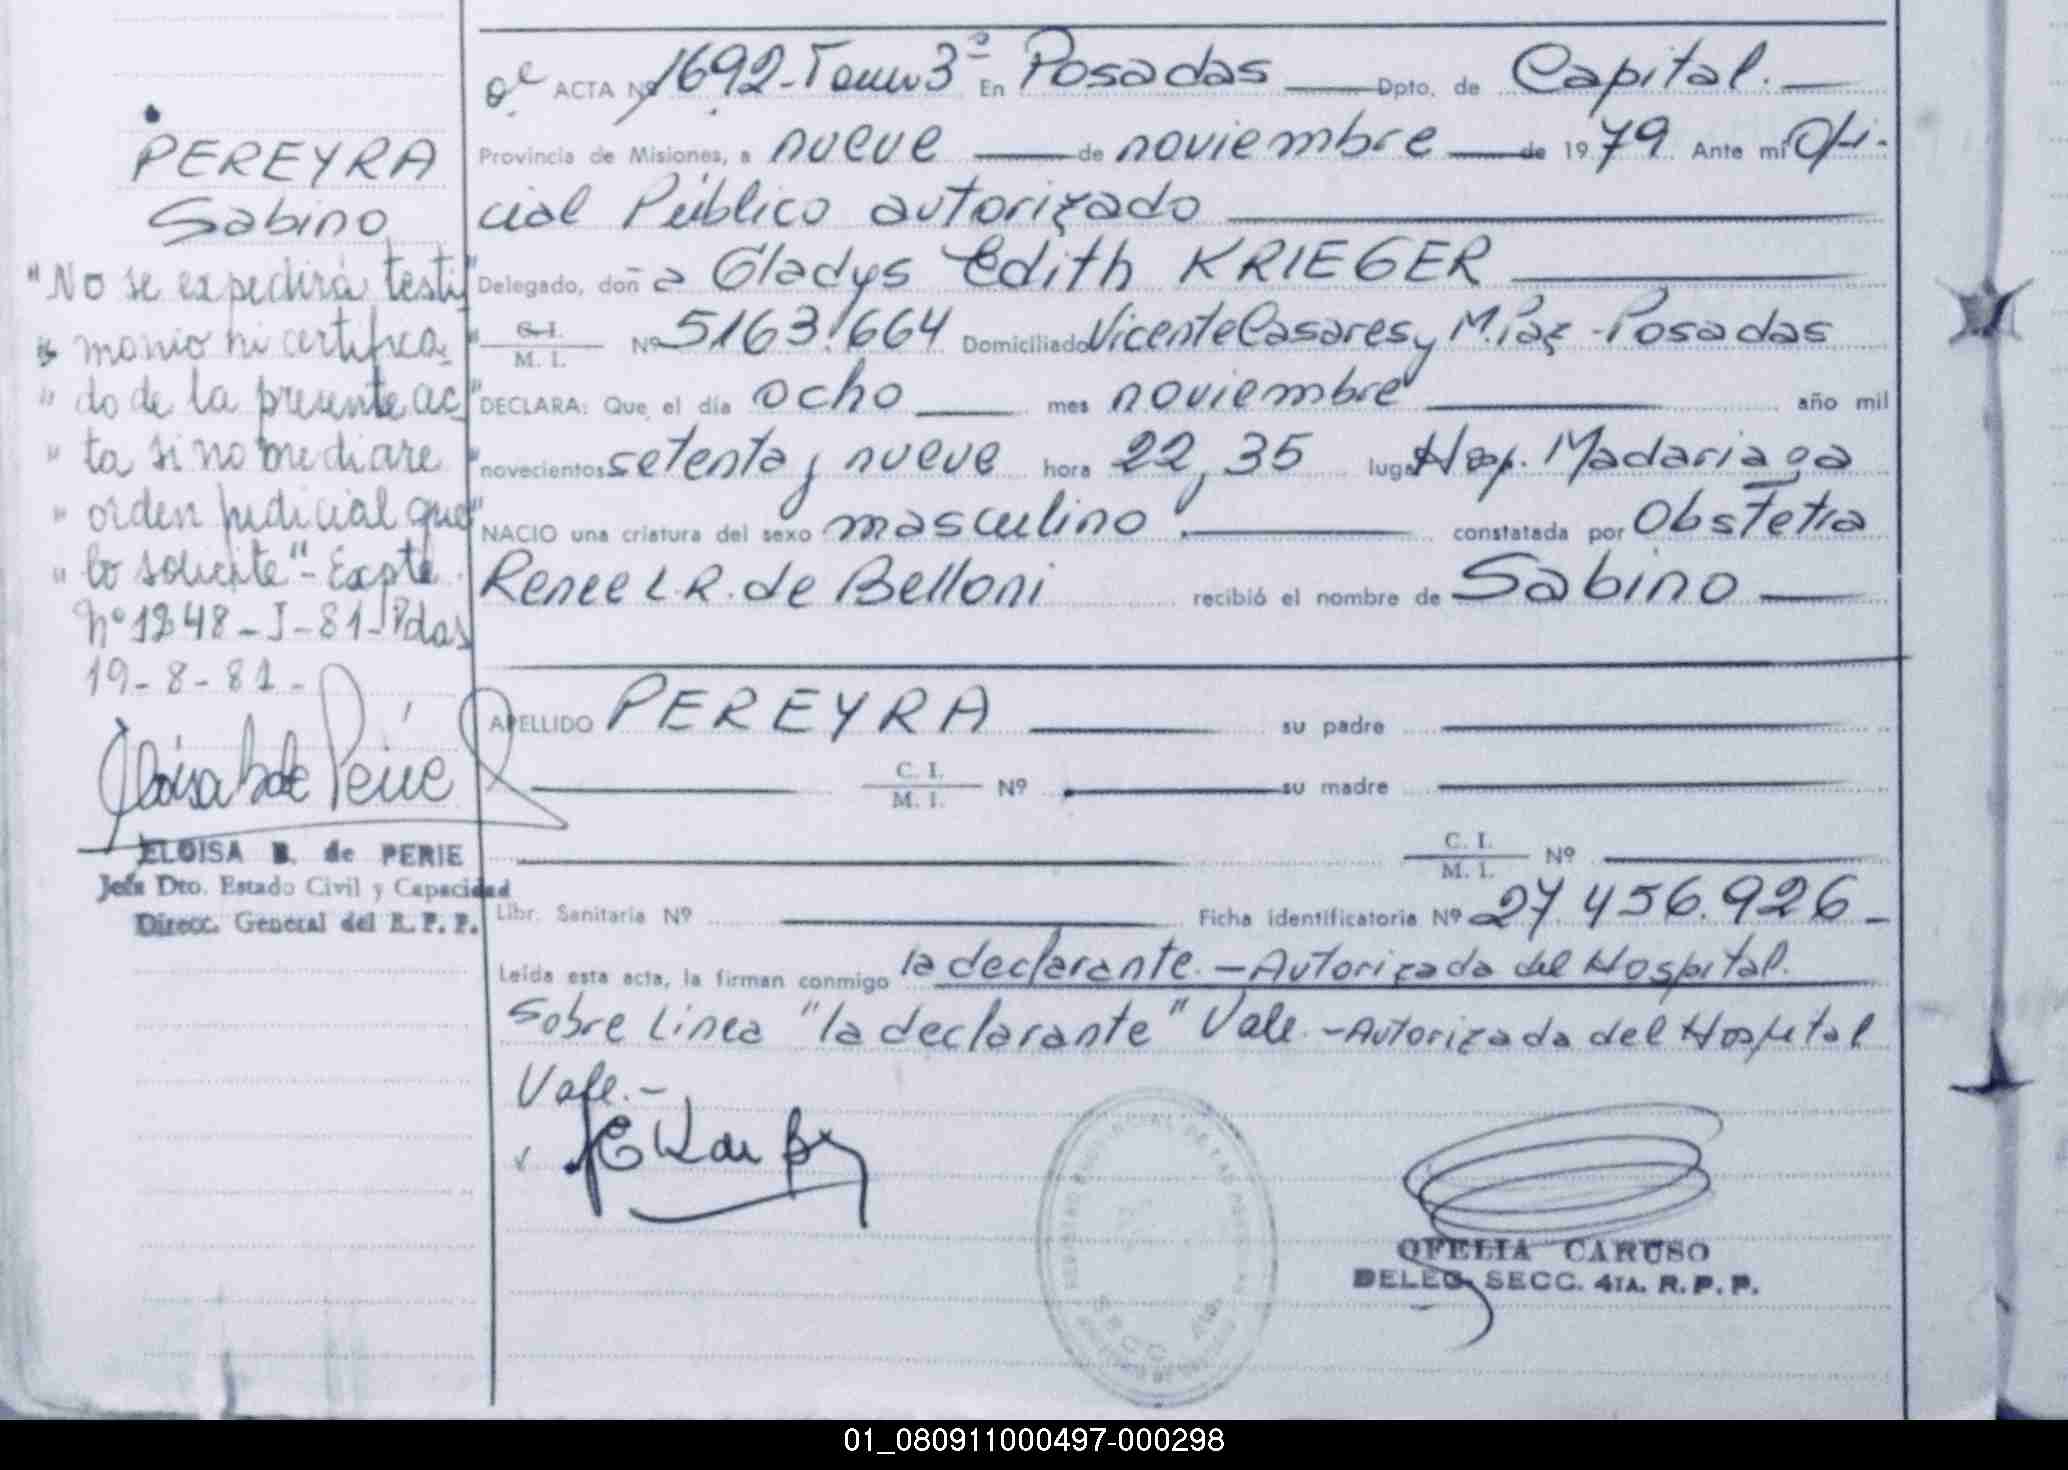 PEREYRA
Sabino
"No se expedirá testi"
" monio ni certifica "
" do de la presente ac"
" ta si no mediare "
" orden judicial que"
" lo solicite"- Expte
Nº 1348-J-81-Pdas
19-8-81-
ELOISA B. de PERIE
Jefa Dto. Estado Civil y Capacidad
Direcc. General del R. P. P.
ACTA Nº 1692-Tomo 3º En Posadas Dpto. de Capital.
Provincia de Misiones, a nueve de noviembre de 1979 Ante mí Ofi-
cial Público autorizado
Delegado, doña Gladys Edith KRIEGER
C. I. / M. I. Nº 5163.664 Domiciliado Vicente Casares y M. Paz - Posadas
DECLARA: Que el día ocho mes noviembre año mil
novecientos setenta y nueve hora 22,35 lugar Hosp. Madariaga
NACIO una criatura del sexo masculino constatada por Obstetra
Renee L R. de Belloni recibió el nombre de Sabino
APELLIDO PEREYRA su padre
C. I. / M. I. Nº su madre
C. I. / M. I. Nº
Libr. Sanitaria Nº Ficha identificatoria Nº 27 456.926-
Leída esta acta, la firman conmigo la declarante.-Autorizada del Hospital.
Sobre Linea "la declarante" Vale.-Autorizada del Hospital
Vale.-
OFELIA CARUSO
DELEG. SECC. 4TA. R. P. P.
01_080911000497-000298